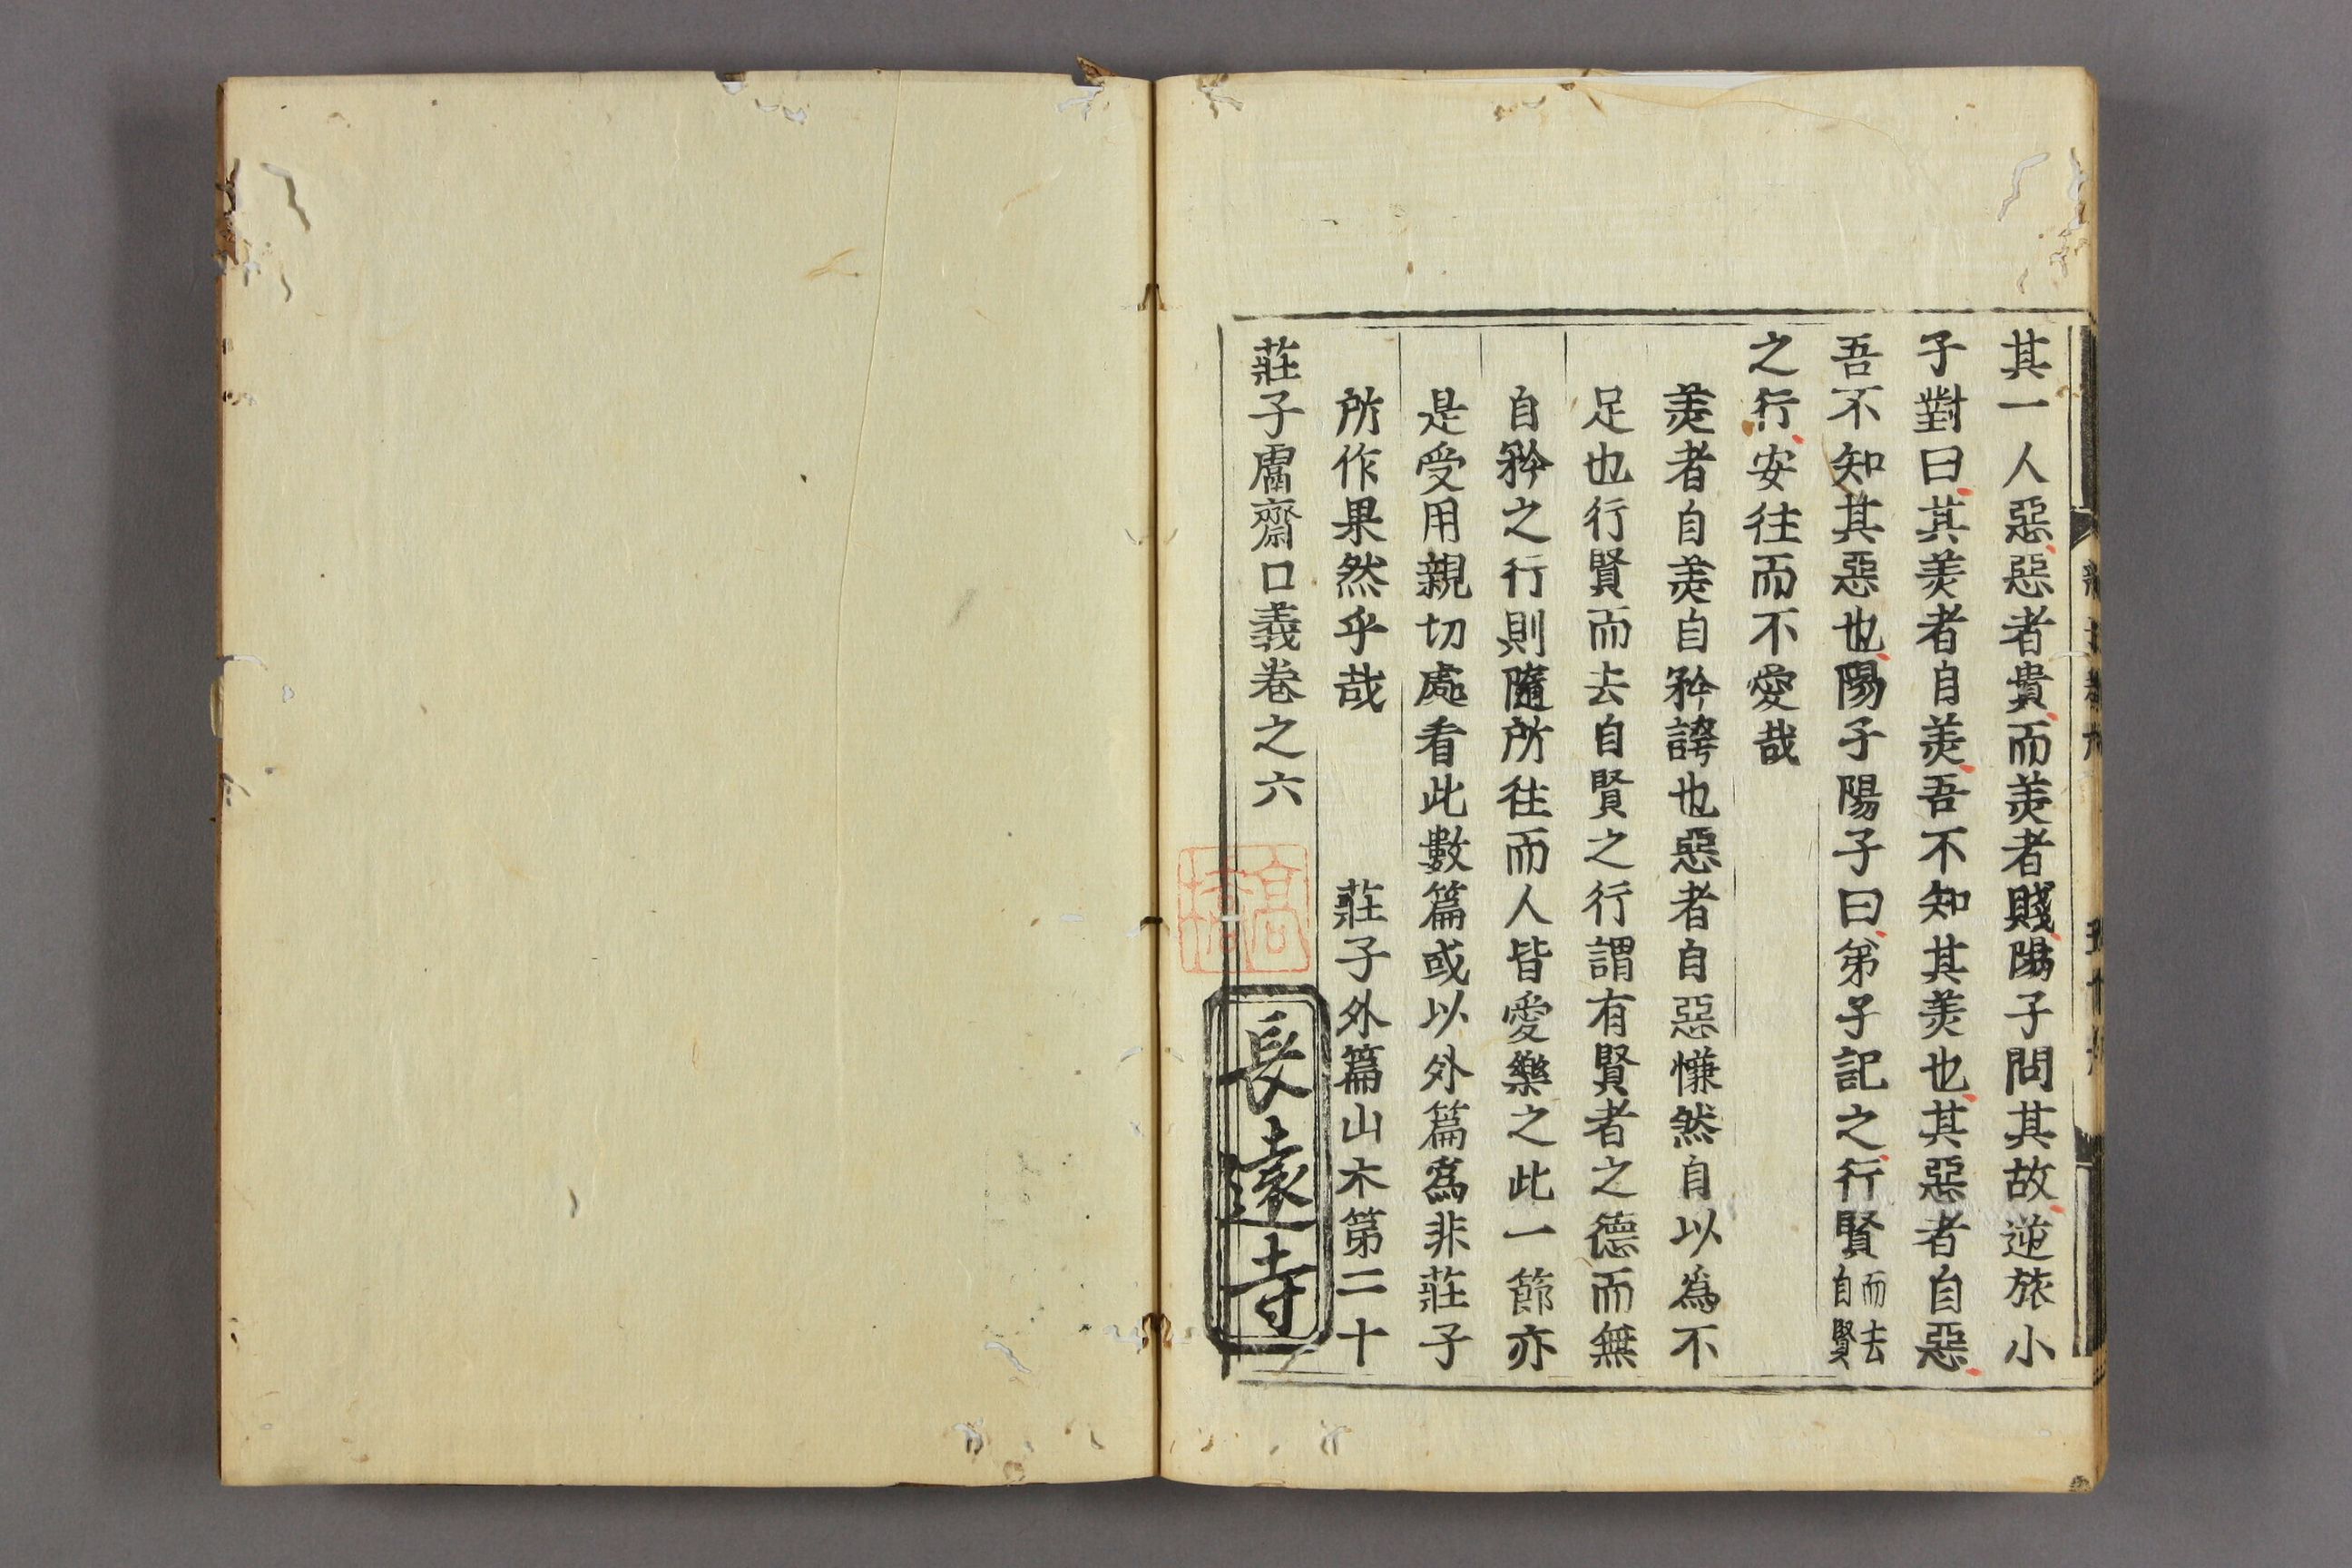 其一人惡惡者貴而美者賤陽子問其故逆旅小
子對曰其美者自美吾不知其美也其惡者自惡
吾不知其惡也陽子陽子曰弟子記之行賢而去自賢
之行安往而不愛哉
美者自美自矜誇也惡者自惡慊然自以爲不
足也行賢而去自賢之行謂有賢者之德而無
自矜之行則隨所往而人皆愛樂之此一節亦
是受用親切處看此數篇或以外篇爲非莊子
所作果然乎哉 莊子外篇山木第二十
莊子鬳齋口義卷之六
長遠寺